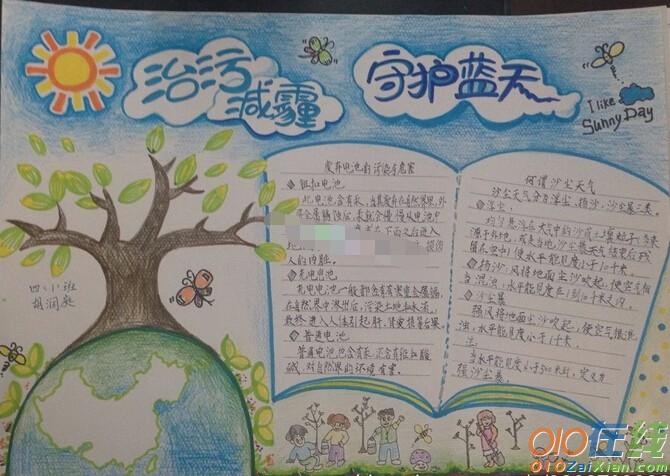 治污
减霾
守护蓝天
I like
Sunny Day
废弃电池的污染与危害
钮扣电池
人的内脏。
充电电池
充电电池一般都含有有害重金属镉，
在自然界中渗出后，污染土地和水源，
最终进入人体引起肝、肾衰损等后果。
普通电池
普通电池也含有汞，还含有酸和
碱，对自然界的环境有害。
何谓沙尘天气
沙尘天气分为浮尘、扬沙、沙尘暴三类。
浮尘：
均匀悬浮在大气中的沙或土壤粒子（多来
源于外地，或是当地沙尘暴天气结束后残
留在空中）使水平能见度小于10千米。
扬沙：风将地面尘沙吹起，使空气相当
混浊，水平能见度在1到10千米之内。
沙尘暴
强风将地面尘沙吹起，使空气很混
浊，水平能见度小于1千米。
当水平能见度小于500米时，定义为
强沙尘暴。
四、小班
胡润赵
010在线
010ZaiXian.com